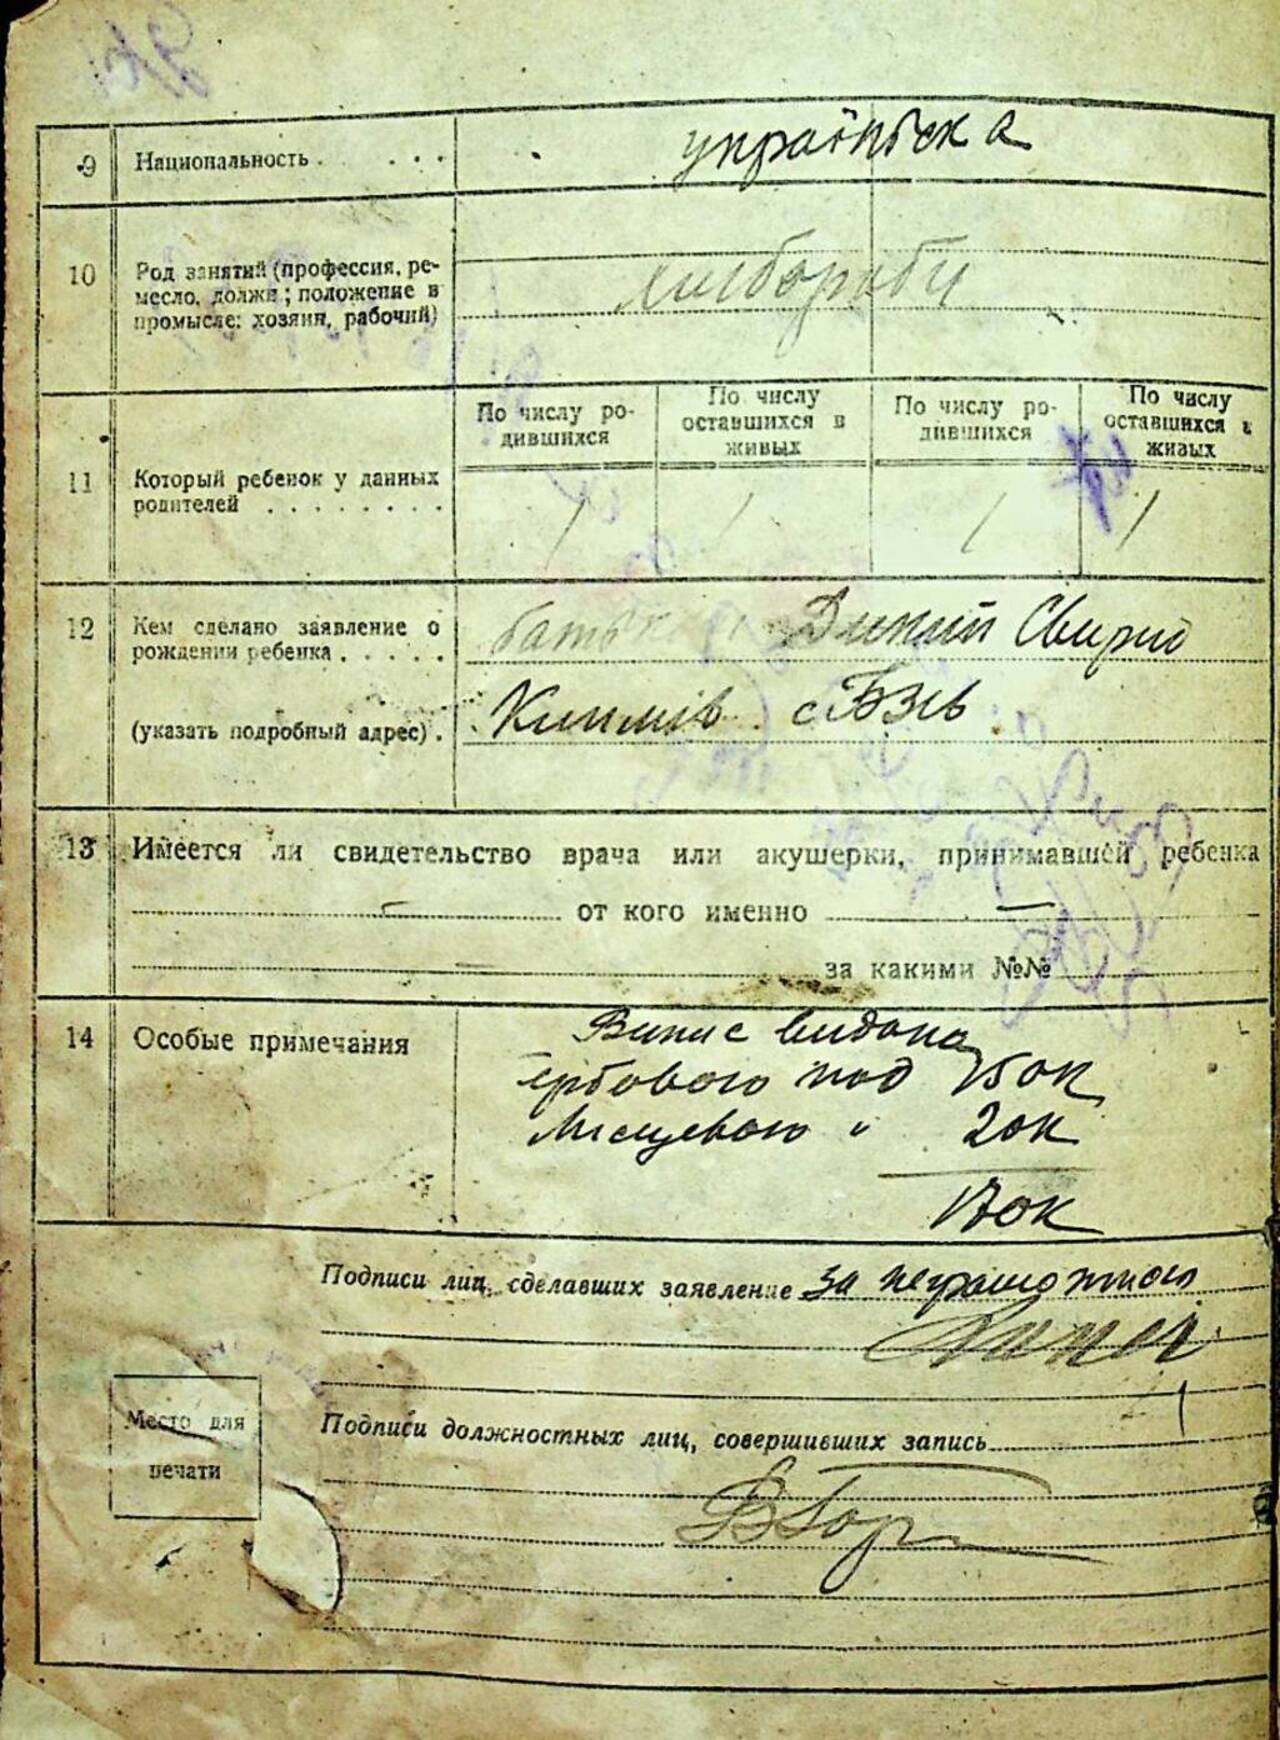 9 Национальность . . . . українська
10 Род занятий (профессия, ре-
месло, должн; положение в
промысле: хозяин, рабочий)
хлібороби
По числу ро-
дившихся
По числу
оставшихся в
живых
По числу ро-
дившихся
По числу
оставшихся в
живых
11 Который ребенок у данных
родителей . . . . . . . .
1 1 1 1
12 Кем сделано заявление о
рождении ребенка . . . . .
(указать подробный адрес) .
13 Имеется ли свидетельство врача или акушерки, принимавшей ребенка
— от кого именно —
— за какими №№
14 Особые примечания
Випис видано
гербового под 150к
Місцевого " 20к
170к
Подписи лиц, сделавших заявление за неграмотного
Место для
печати
Подписи должностных лиц, совершивших запись